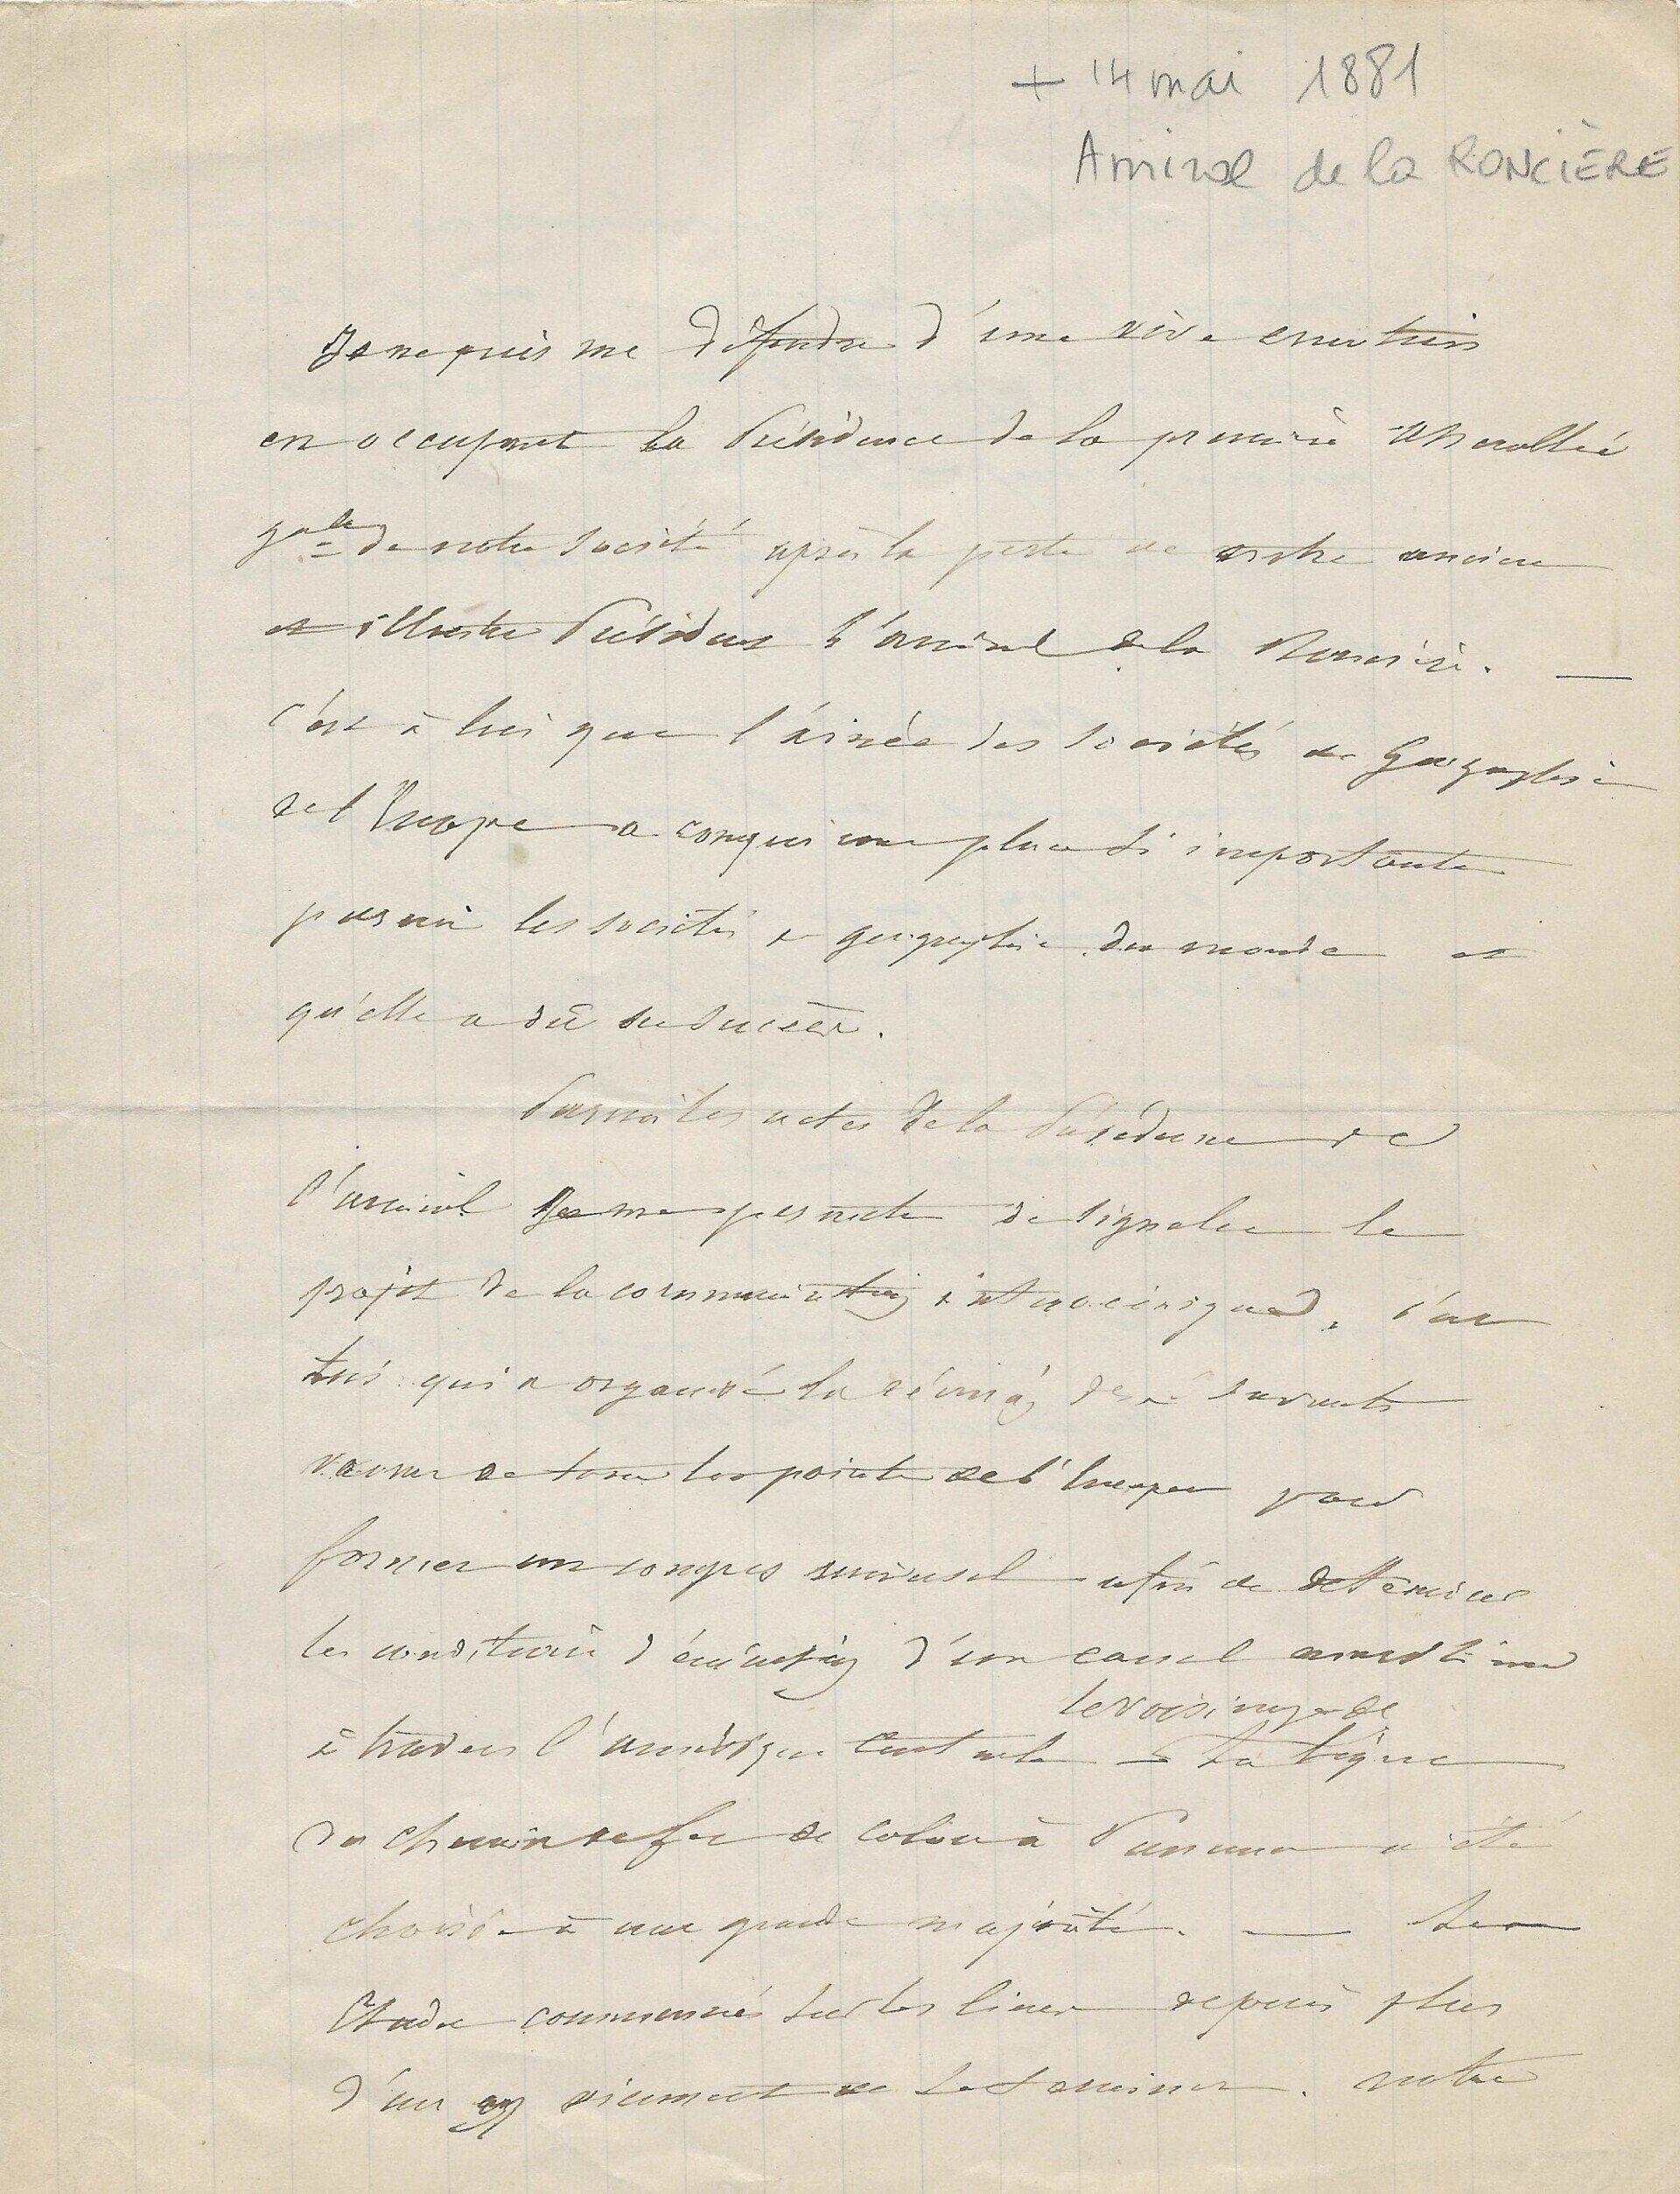 + 14 mai 1881
Amiral de la RONCIÈRE
Je ne puis me défendre d'une vive émotion
en occupant la Présidence de la première assemblée
gale de notre Société après la perte de notre ancien
et illustre Président l'amiral de la Roncière. —
C'est à lui que l'aînée des Sociétés de Géographie
de l'Europe a conquis une place si importante
parmi les sociétés de géographie du monde et
qu'elle a dû
Parmi les actes de la Présidence de
l'amiral Je me permets de signaler le
projet de la communication interocéanique, c'est
lui qui a organisé la réunion de savants
venus de tous les points de l'Europe pour
former un congrès universel afin de déterminer
les conditions d'exécution d'un canal maritime
le voisinage de
à travers l'amérique Centrale — la ligne
du chemin de fer de Colon à Panama a été
choisie à une grande majorité. — Les
Etudes commencées sur les lieux depuis plus
d'un an viennent de se terminer. notre